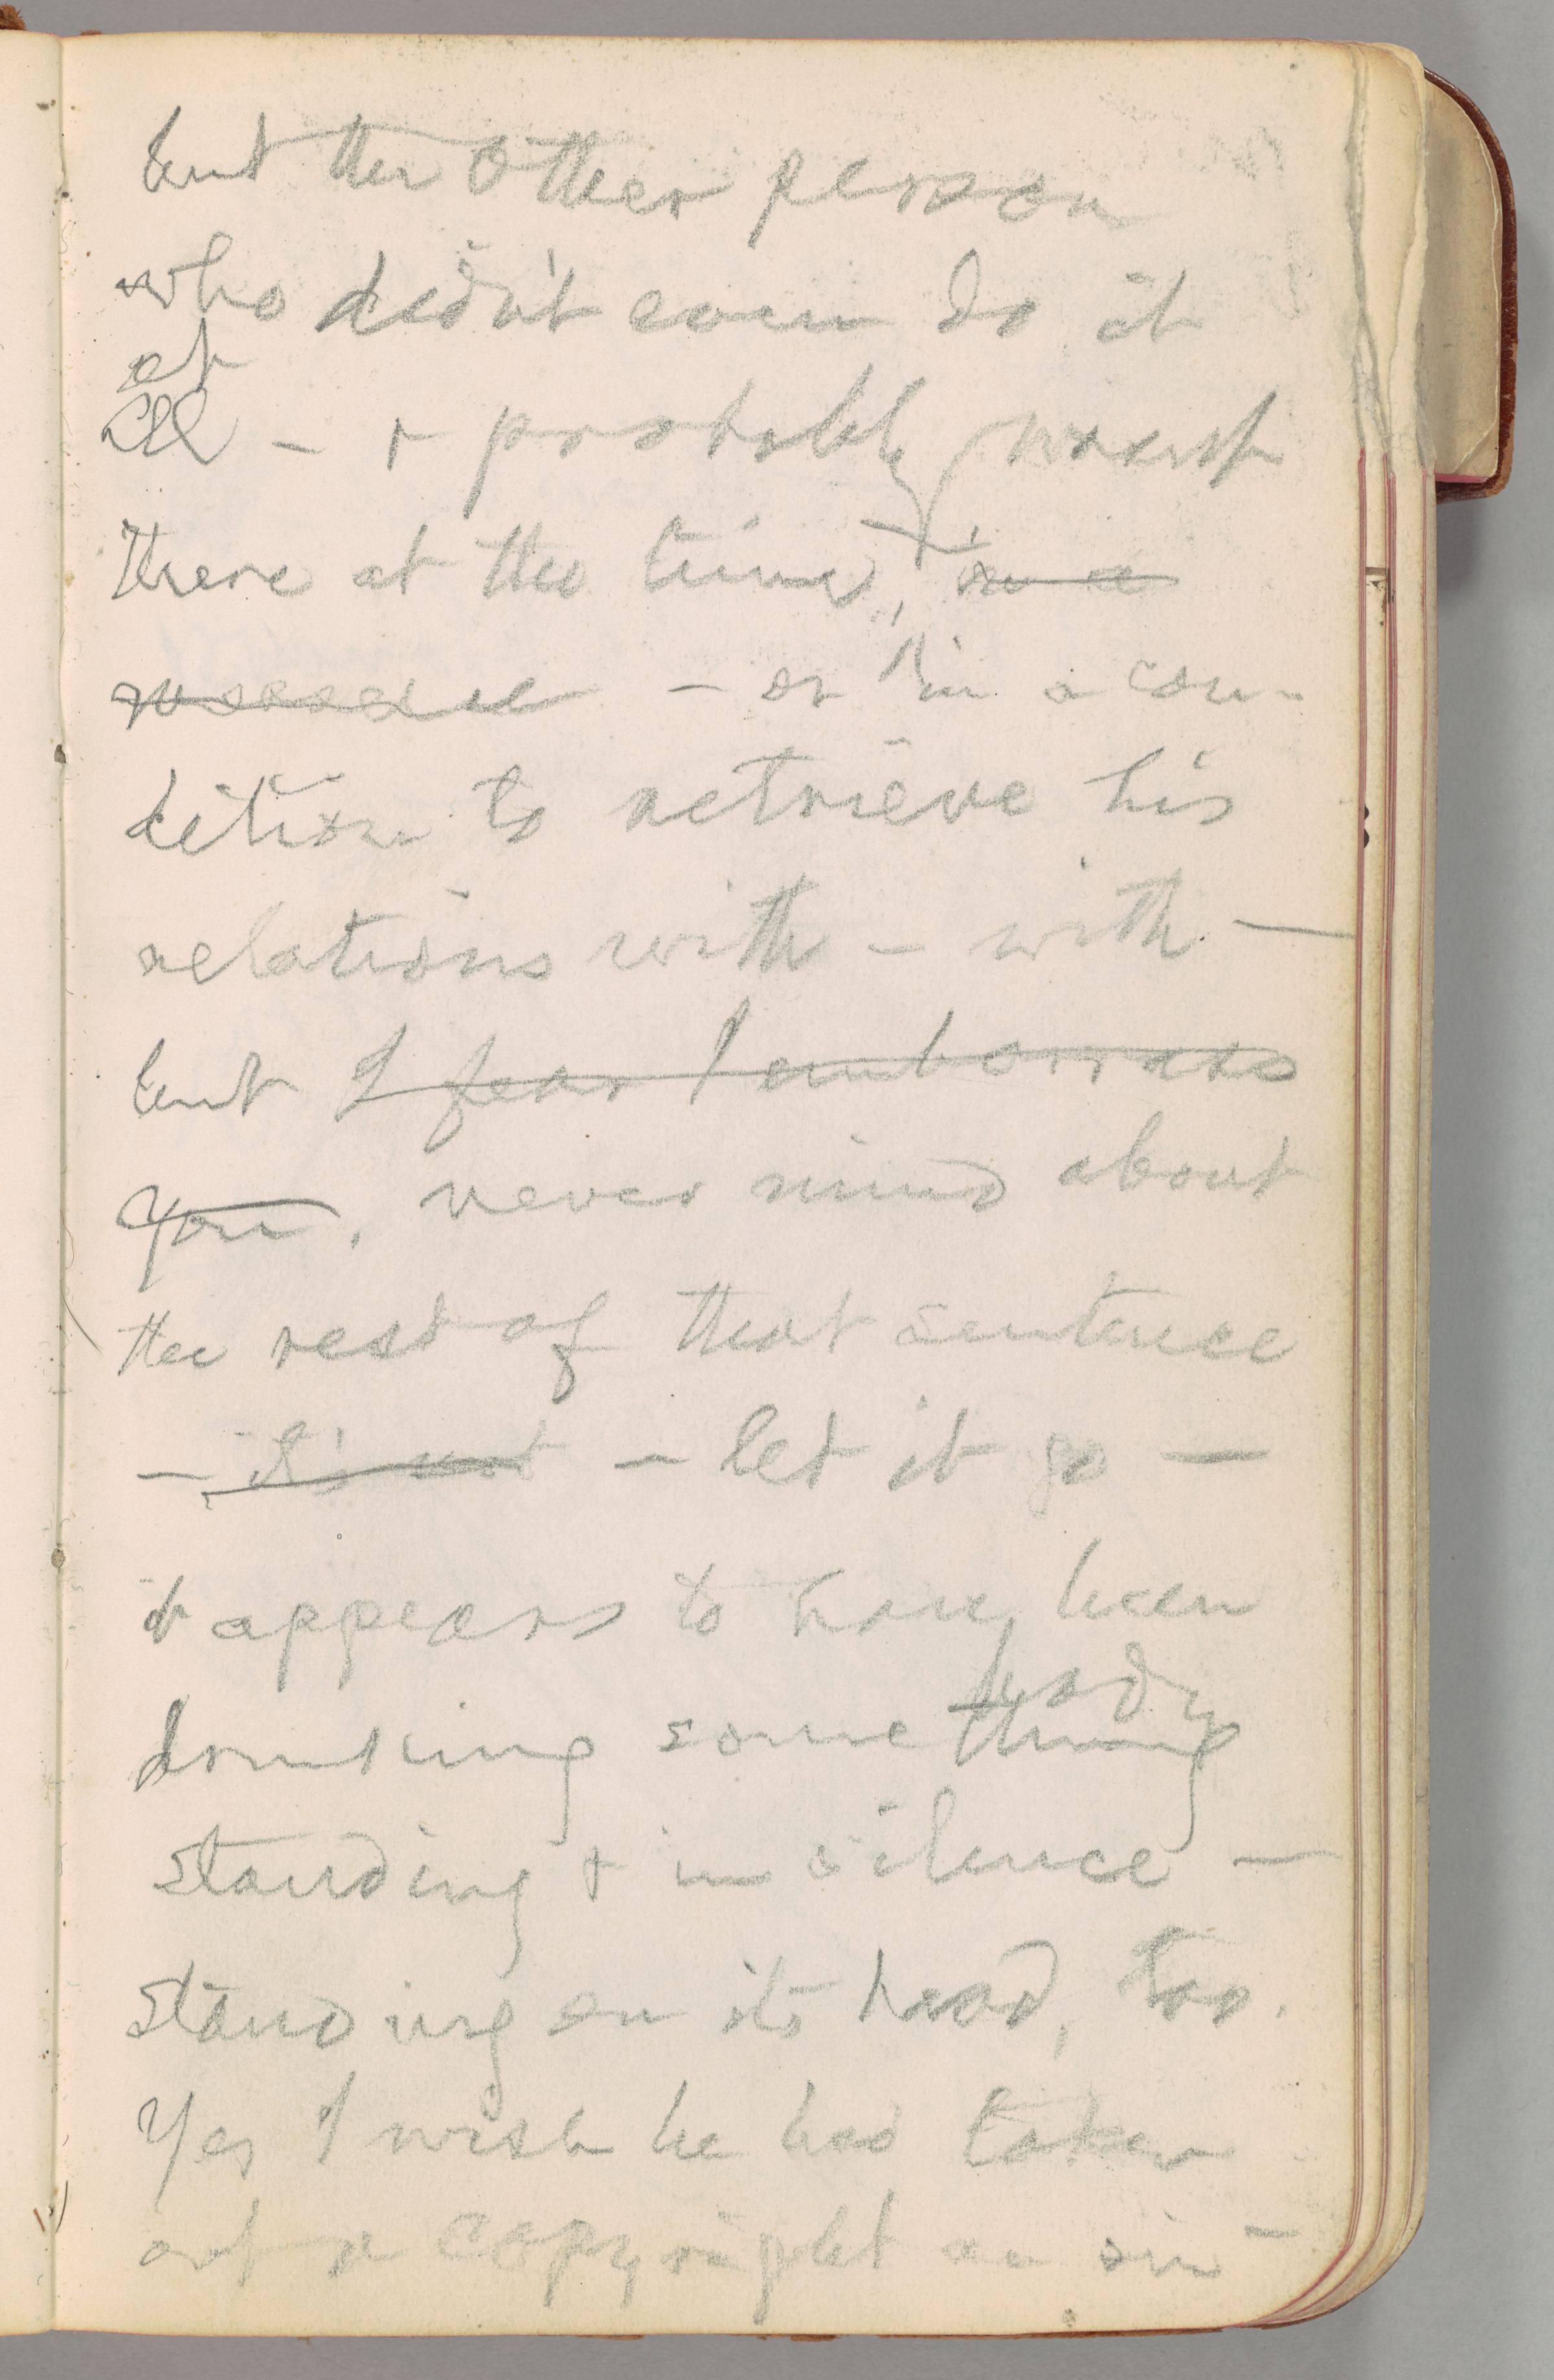 but the other person
who didn't even do it
at
all - & probably wasn't
there at the time, in a
- or in a con-
dition to retrieve his
relations with - with -
but I fear I embarrass
you, never mind about
the rest of that sentence
- it's not - let it go -
it appears to have been
body
drinking something
standing & in silence -
standing on its head, too.
Yes I wish he had taken
out a copyright on sin -